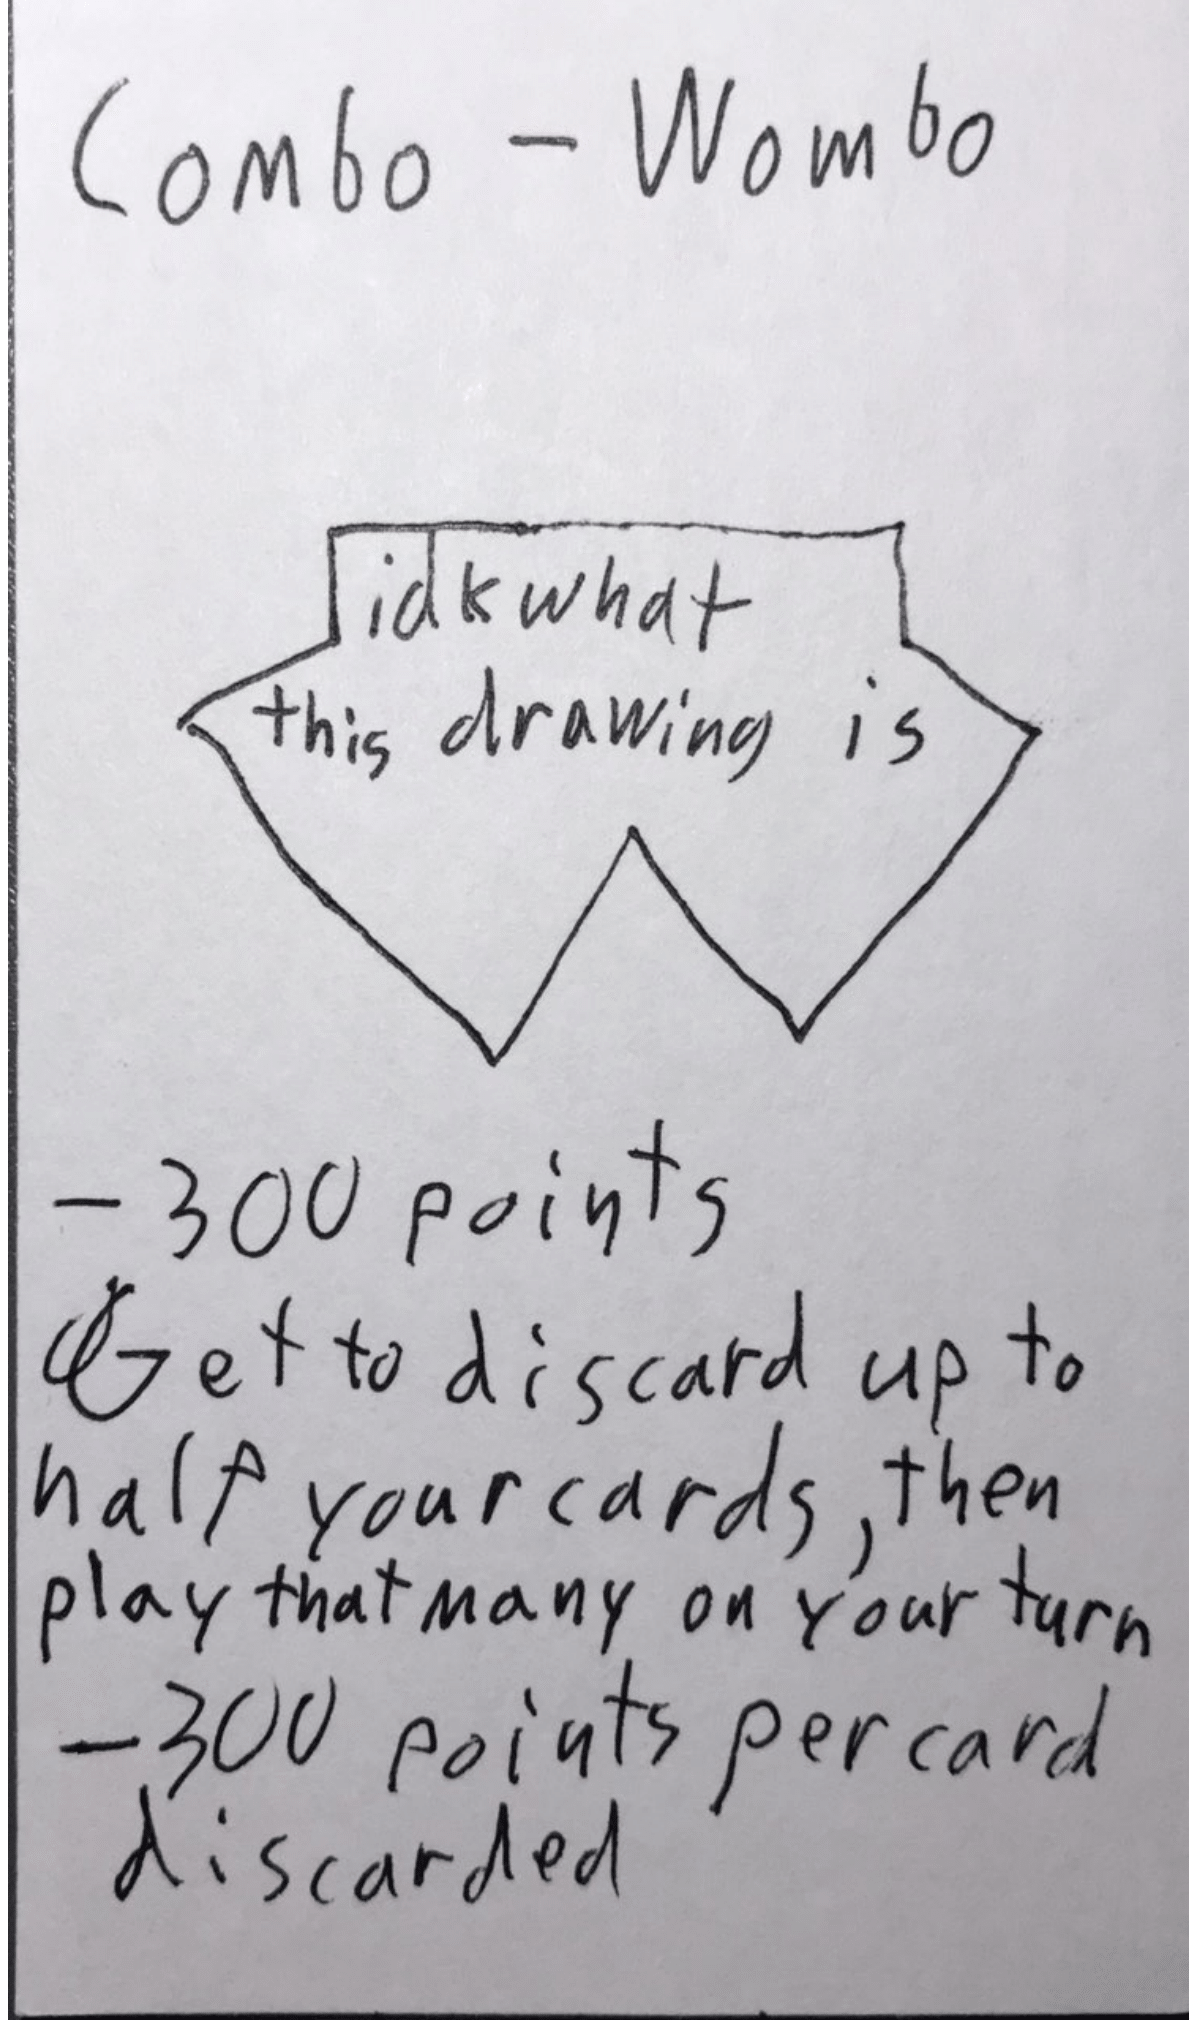 Combo - Wombo
idk what
this drawing is
-300 points
Get to discard up to
half your cards, then
play that many on your turn
-300 points per card
discarded